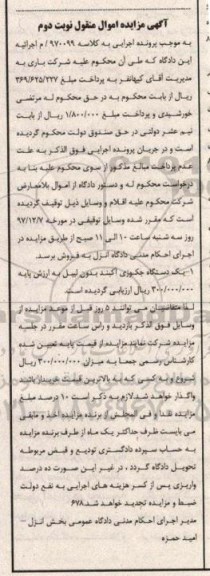 آگهی مزایده اموال منقول نوبت دوم
به موجب پرونده اجرایی به کلاسه ۹۷۰۰۹۹ /م اجرائیه
این دادگاه که طی آن محکوم علیه شرکت باری به
مدیریت آقای کیهانفر به پرداخت مبلغ ۳۶۹/۶۲۵/۲۲۷
ریال از بابت محکوم به در حق محکوم له مرتضی
خورشیدی و پرداخت مبلغ ۱/۸۰۰/۰۰۰ ریال از بابت
نیم عشر دولتی در حق صندوق دولت محکوم گردیده
است و در جریان پرونده اجرایی فوق الذکر به علت
عدم پرداخت مبلغ مذکور از سوی محکوم علیه بنا به
درخواست محکوم له و دستور دادگاه از اموال بلامعارض
شرکت محکوم علیه اقلام و وسایل ذیل توقیف گردیده
است که مقرر شده وسایل توقیفی در مورخه ۹۷/۱۲/۷
روز سه شنبه ساعت ۱۰ الی ۱۱ صبح از طریق مزایده در
اجرای احکام مدنی دادگاه انزل به فروش برسد.
۱-یک دستگاه چکوزی آکبند بدون لیبل به ارزش پایه
۳۰۰/۰۰۰/۰۰۰ ریال ارزیابی گردیده است.
لذا متقاضیان می توانند ۵ روز قبل از موعد مزایده از
وسایل فوق الذکر بازدید و راس ساعت مقرر در جلسه
مزایده شرکت نمایند مزایده از قیمت پایه تعیین شده
کارشناس رسمی جمعا به میزان ۳۰۰/۰۰۰/۰۰۰ ریال
شروع و به کسی که به بالاترین قیمت خریدار باشد
واگذار خواهد شد لازم به ذکر است ۱۰ درصد مبلغ
مزایده نقدا و فی المجلس از برنده مزایده اخذ و مابقی
می بایست ظرف حداکثر یک ماه از طرف برنده مزایده
به حساب سپرده دادگستری تودیع و قبض مربوطه
تحویل دادگاه گردد ، در غیر این صورت ده درصد
واریزی پس از کسر هزینه های اجرایی به نفع دولت
ضبط و مزایده تجدید خواهد شد.۶۷۸
مدیر اجرای احکام مدنی دادگاه عمومی بخش انزل -
امید حمزه